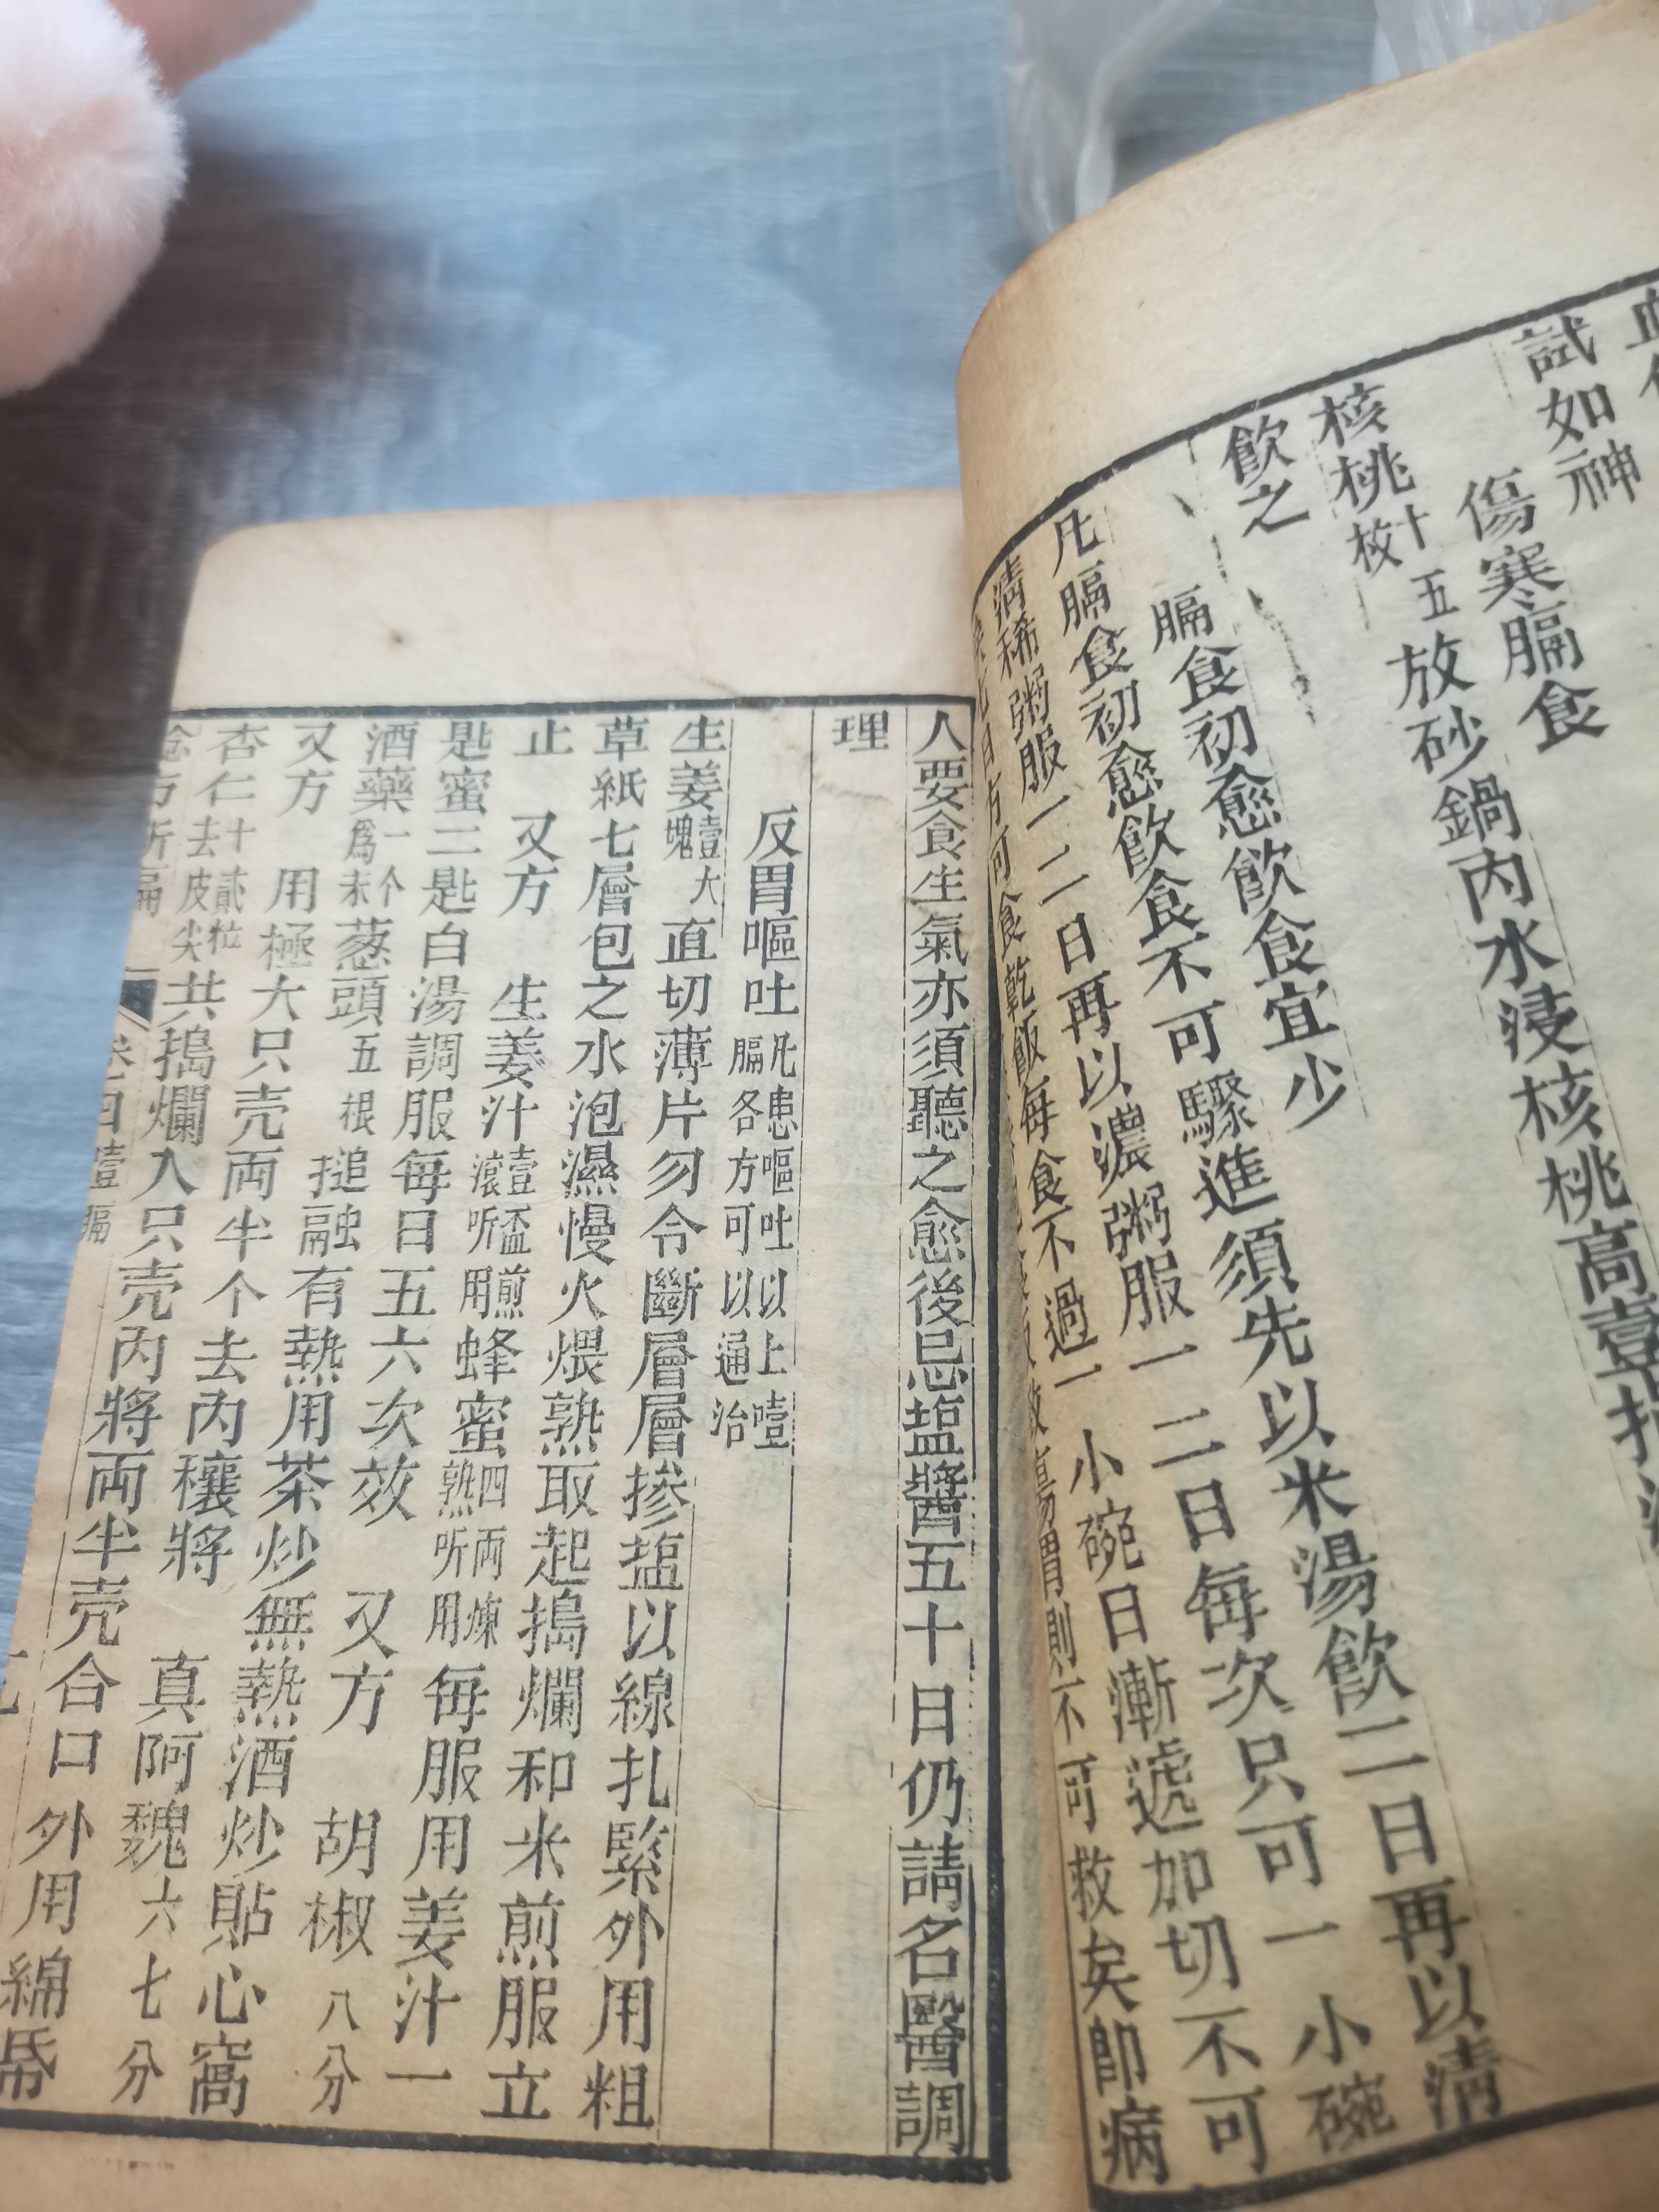 試如神
傷寒膈食
核桃十五枚放砂鍋內水浸核桃高壹
飲之
膈食初愈飲食宜少
凡膈食初愈飲食不可驟進須先以米湯飲二日再以清
清稀粥服一二日再以濃粥服一二日每次只可一小碗
食乾飯每食不過一小碗日漸遞加切不可
則不可救矣卽病
人要食生氣亦須聽之愈後忌塩醬五十日仍請名醫調
理
反胃嘔吐凡患嘔吐以上噎膈各方可以通治
生姜壹大塊直切薄片勿令斷層層摻塩以線扎緊外用粗
草紙七層包之水泡濕慢火煨熟取起搗爛和米煎服立
止 又方 生姜汁壹盃煎滾听用蜂蜜四両煉熟听用每服用姜汁一
匙蜜二匙白湯調服每日五六次效 又方 胡椒八分
酒藥一个爲末葱頭五根搥融有熱用茶炒無熱酒炒貼心窩
又方 用極大只壳両半个去內穰將 真阿魏六七分
杏仁十貳粒去皮尖共搗爛入只壳內將両半壳合口外用綿
卷四 噎膈